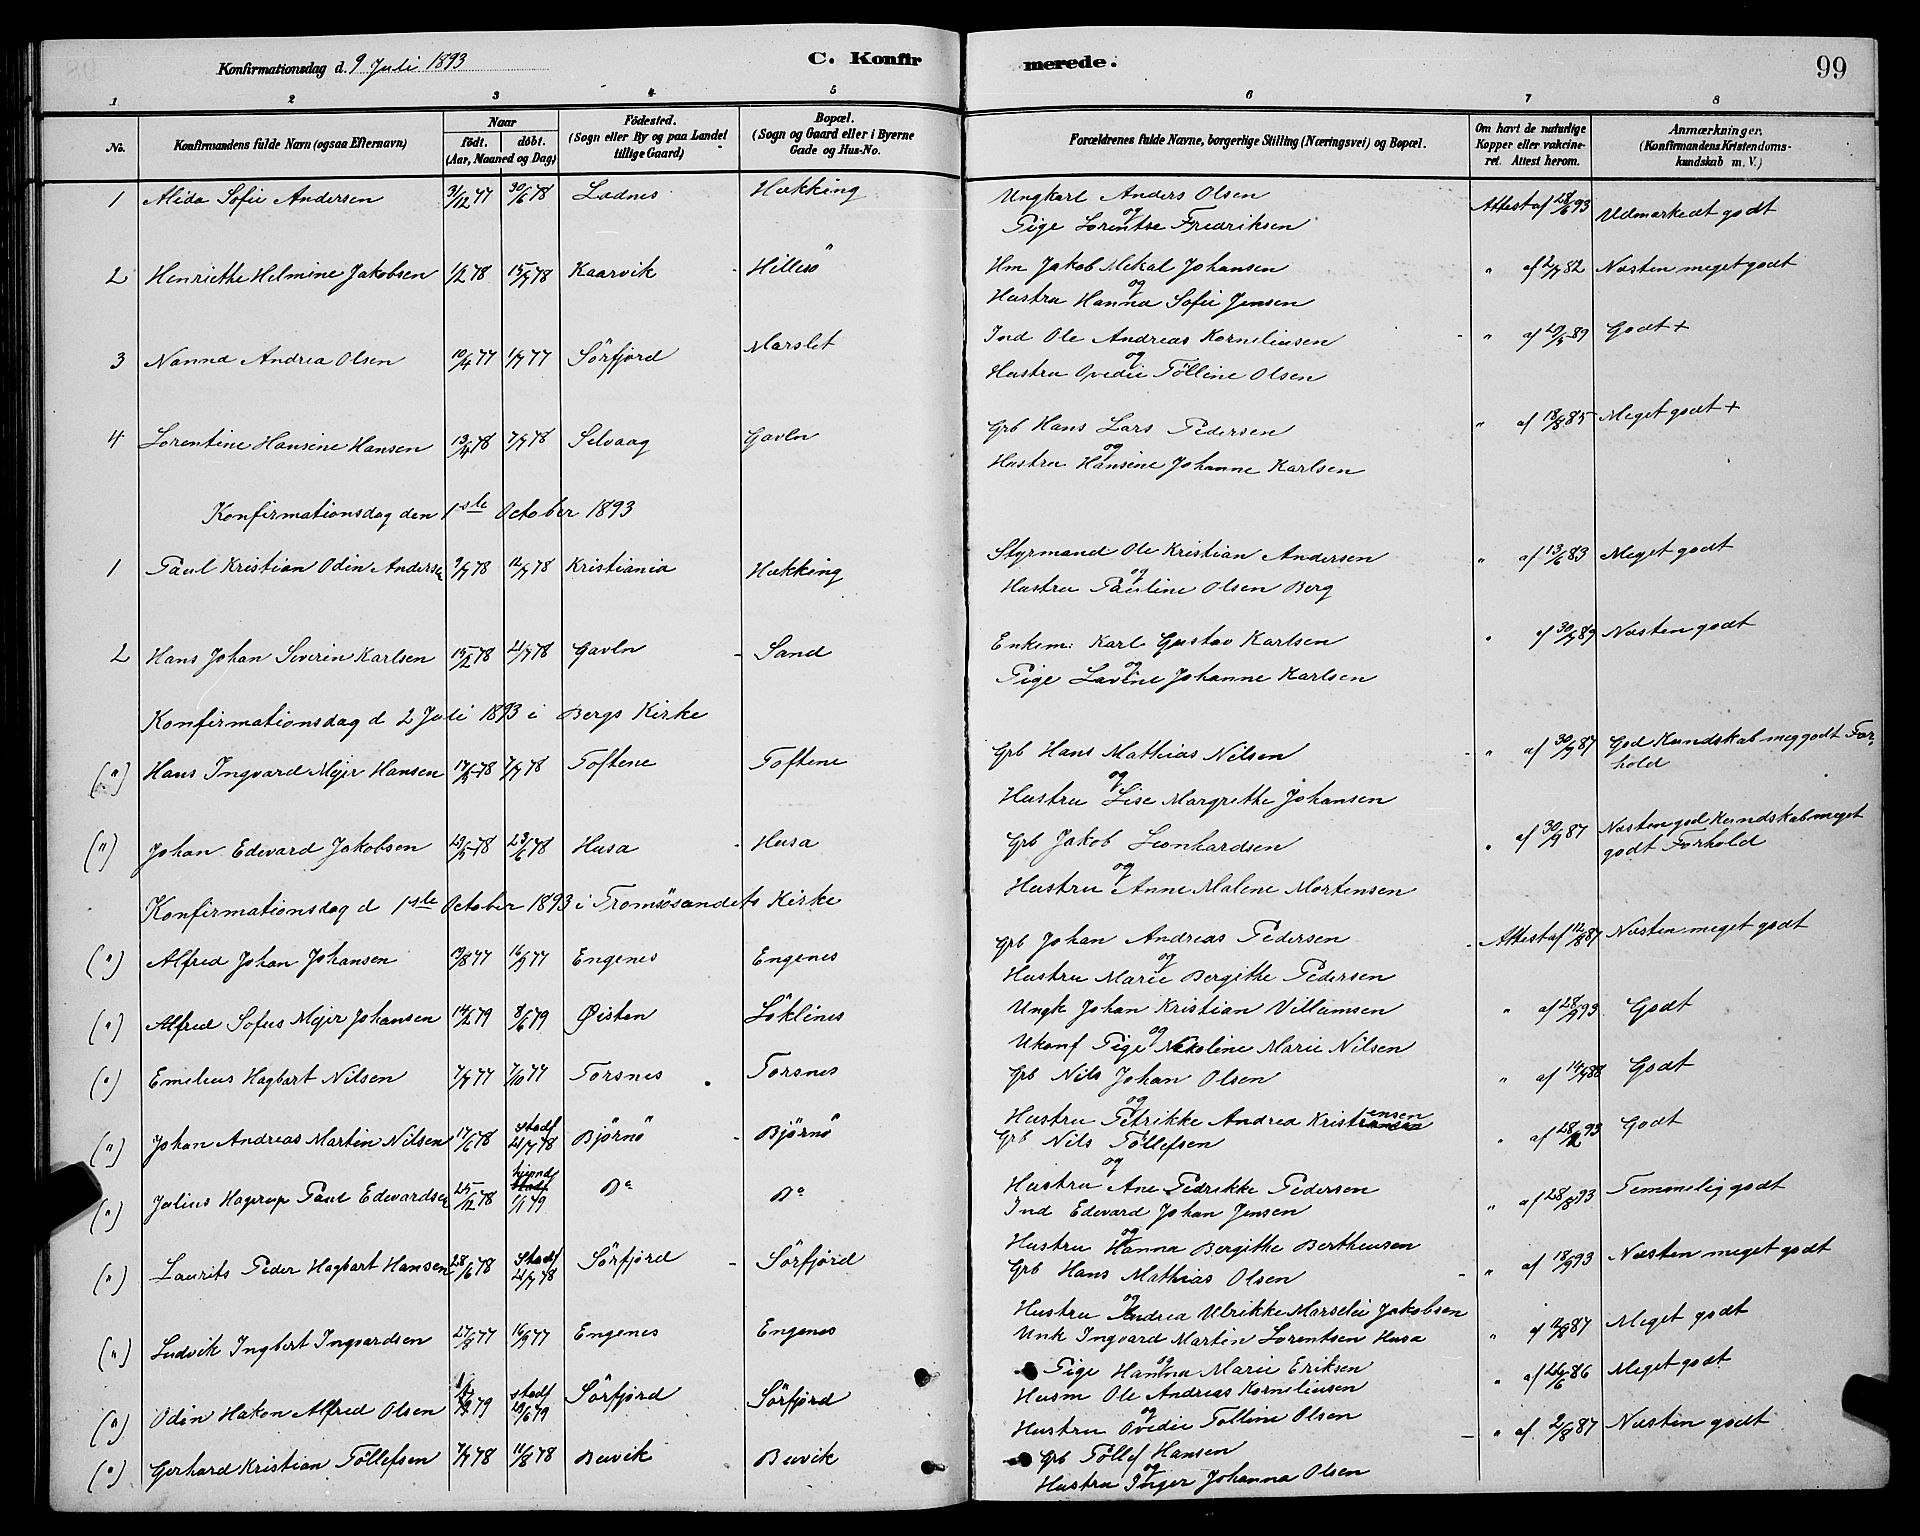 Konfirmationsdag d. 9 Juli 1893 C. Konfir merede. 99
1 2 3 4 5 6 7 8
No. Konfirmandens fulde Navn (ogsaa Efternavn) Naar födt. döbt. (Aar, Maaned og Dag) Födested. (Sogn eller By og paa Landet tillige Gaard) Bopæl. (Sogn og Gaard eller i Byerne Gade og Hus-No. Forældrenes fulde Navne, borgerlige Stilling (Næringsvei) og Bopæl. Om havt de naturlige Kopper eller vakcineret. Attest herom. Anmærkninger. (Konfirmandens Kristendomskundskab m. V.)
1 Alida Sofie Andersen 3/12 77 30/6 78 Lødnes Hækking Ungkarl Anders Olsen Attest af 28/6 93 Udmærkedt godt
og
Pige Lorentse Fredriksen
2 Henriethe Helmine Jakobsen 1/2 78 15/7 78 Kaarvik Hillesö Hm Jakob Mekal Johansen " af 2/7 82 Næsten meget godt
og
Hustru Hanna Sofie Jensen
3 Nanna Andrea Olsen 10/4 77 1/7 77 Sörfjord Marslet Ind Ole Andreas Korneliusen " af 29/5 89 Godt +
og
Hustru Ovedie Tölline Olsen
4 Lorentine Hansine Hansen 13/4 78 7/7 78 Selvaag Gavln Grb Hans Lars Pedersen " af 18/8 85 Meget godt +
og
Hustru Hansine Johanne Karlsen
Konfirmationsdag den 1ste October 1893
1 Paul Kristian Odin Andersen 9/7 78 12/7 78 Kristiania Hækking Styrmand Ole Kristian Andersen " af 13/6 83 Meget godt
og
Hustru Pauline Olsen Berg
2 Hans Johan Severin Karlsen 15/2 78 21/7 78 Gavln Sand Enkem: Karl Gustav Karlsen " af 30/7 89 Næsten godt
og
Pige Lavine Johanne Karlsen
Konfirmationsdag d 2 Juli 1893 i Bergs Kirke
(") Hans Ingvard Mejer Hansen 17/5 78 7/7 78 Toftene Toftene Grb Hans Mathias Nilsen " af 30/9 87 God Kundskab meg godt Forhold
og
Hustru Lise Margrethe Johansen
(") Johan Edevard Jakobsen 23/5 78 23/6 78 Husa Husa Grb Jakob Leonhardsen " af 30/9 87 Næsten god Kundskab meget godt Forhold
og
Hustru Anne Malene Mortensen
Konfirmationsdag d 1ste October 1893 i Tromsösandets Kirke
(") Alfred Johan Johansen 19/8 77 16/9 77 Engenes Engenes Grb Johan Andreas Pedersen Attest af 12/8 87 Næsten meget godt
og
Hustru Marie Bergithe Pedersen
(") Alfred Sofus Mejer Johansen 14/2 79 8/6 79 Øisten Löklines Ungk Johan Kristian Villumsen " af 28/9 93 Godt
og
Ukonf Pige Nekoline Marie Nilsen
(") Emelius Hagbart Nilsen 7/7 77 7/10 77 Torsnes Torsnes Grb Nils Johan Olsen " af 14/7 88 Godt
og
Hustru Petrikke Andrea Kristensen
(") Johan Andreas Martin Nilsen 17/6 78 stadf 21/7 78 Björnö Björnö Grb Nils Töllefsen " af 28/2 93 Godt
og
Hustru Ane Pedrikke Pedersen
(") Julius Hagerup Paul Edevardsen 25/12 78 hjemd 1/1 79 Do Do Ind Edevard Johan Jensen " af 28/8 93 Temmelig godt
og
Hustru Hanna Bergithe Bertheusen
(") Laurits Peder Hagbart Hansen 28/6 78 Stadf 21/7 78 Sörfjord Sörfjord Grb Hans Mathias Olsen " af 18/9 93 Næsten meget godt
og
Hustru Andrea Ulrikke Marselie Jakobsen
(") Ludvik Ingbert Ingvardsen 27/8 77 16/9 77 Engenes Engenes Unk Ingvard Martin Lorentsen Husa " af 12/8 87 Meget godt
og
Pige Hanna Marie Eriksen
(") Odin Hakon Alfred Olsen 79 stadf 29/6 79 Sörfjord Sörfjord Husm Ole Andreas Korneliusen " af 26/6 86 Meget godt
og
Hustru Ovedie Tolline Olsen
(") Gerhard Kristian Töllefsen 7/7 78 11/8 78 Buvik Buvik Grb Töllef Hansen " af 2/8 87 Næsten godt
og
Hustru Inger Johanna Olsen